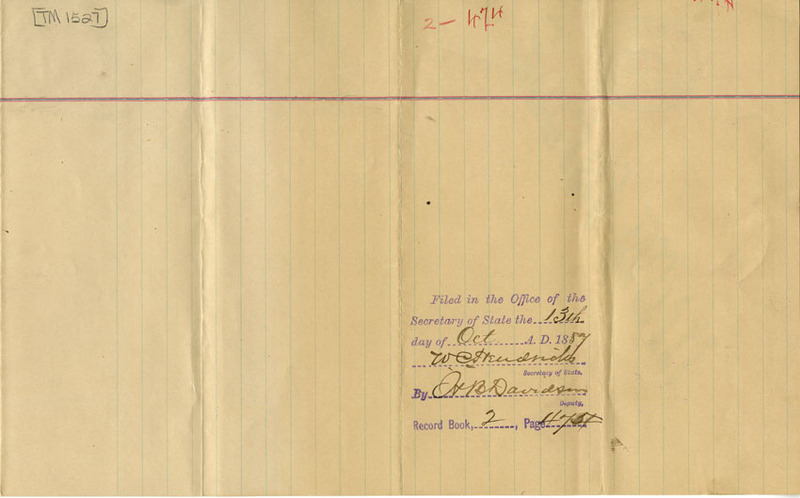 [TM 1527]
2 - 474
Filed in the Office of the
Secretary of State the 13th
day of Oct A. D. 1887
W C Hendricks
Secretary of State.
By H B Davidson
Deputy.
Record Book, 2, Page 474